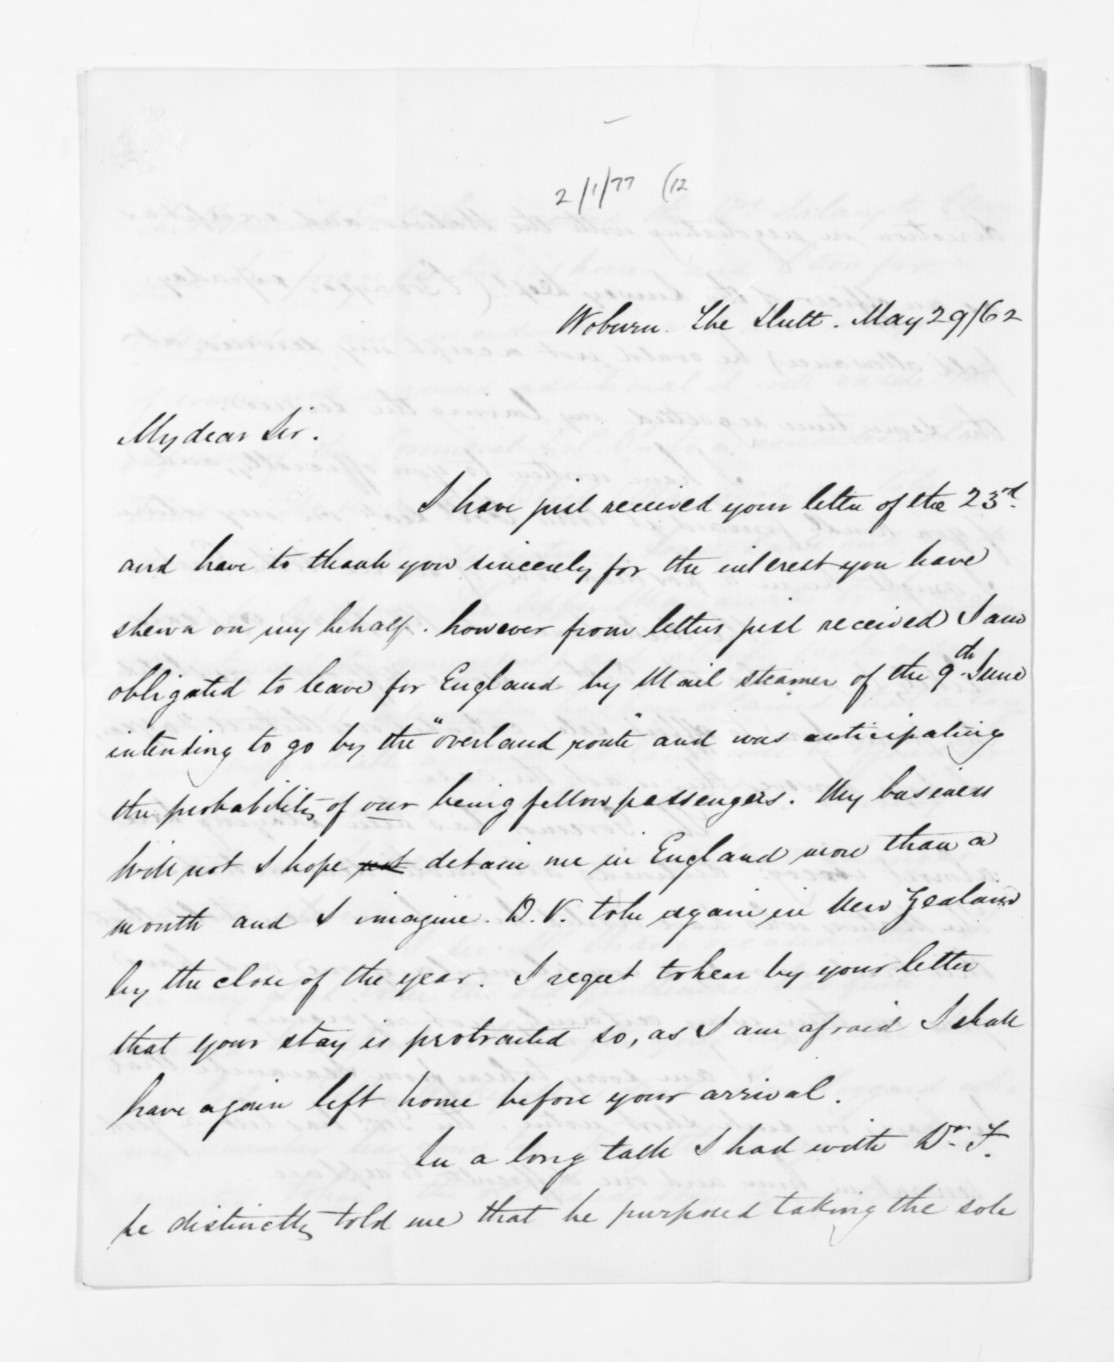 2/1/77 (12
Woburn. The Hutt. May 29/62
My dear Sir.
I have just received your letter of the 23rd.
and have to thank you sincerely for the interest you have
shewn on my behalf. however from letters just received I am
obligated to leave for England by Mail steamer of the 9th June
intending to go by the "overland route" and was anticipating
the probability of our being fellow passengers. My business
will not I hope not detain me in England more than a
month and I imagine. D.V. to be again in New Zealand
by the close of the year. I regret to hear by your letter
that your stay is protracted so, as I am afraid I shall
have again left home before your arrival.
In a long talk I had with Dr. F.
he distinctly told me that he purposed taking the sole